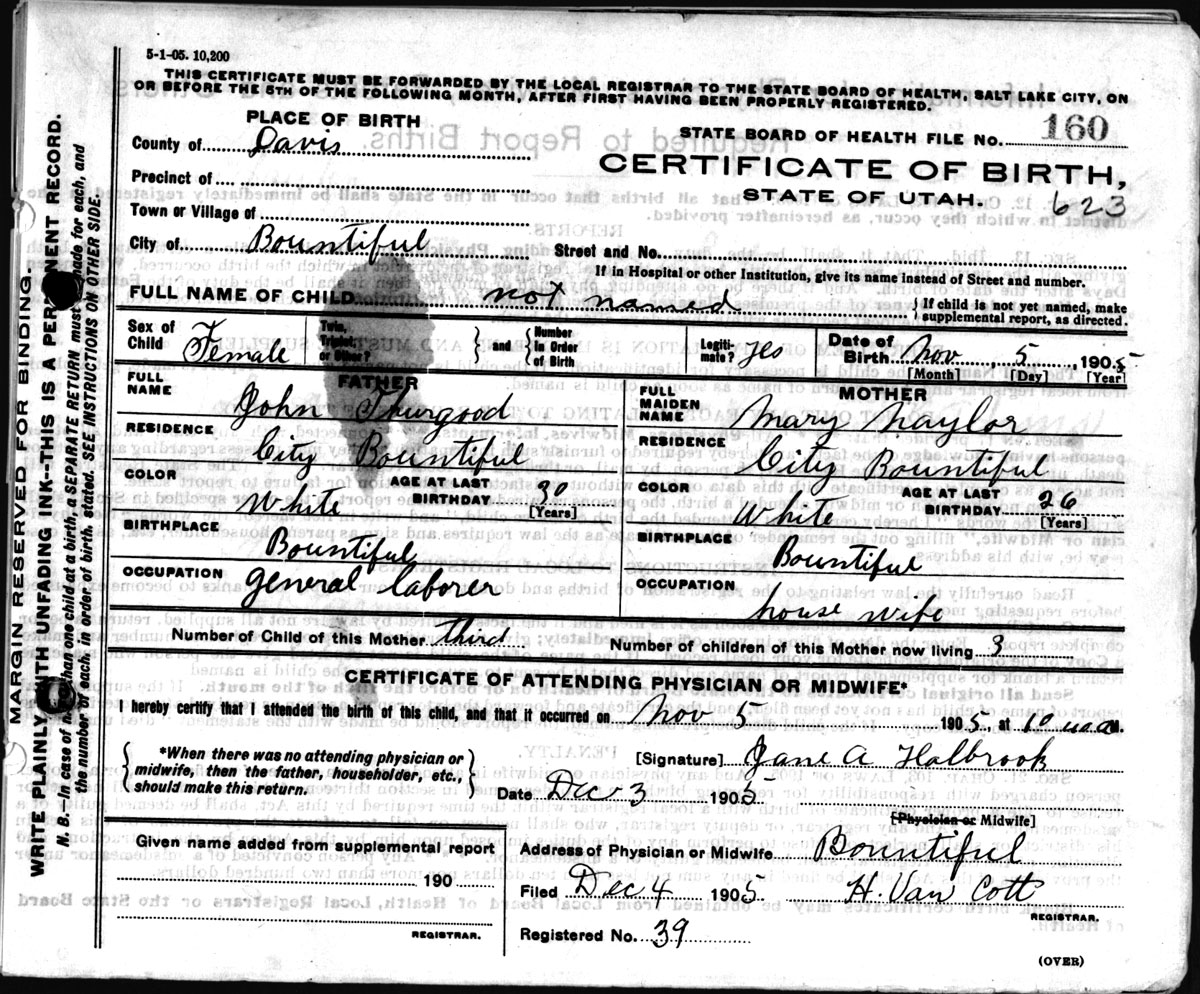 5-1-05. 10,200
THIS CERTIFICATE MUST BE FORWARDED BY THE LOCAL REGISTRAR TO THE STATE BOARD OF HEALTH, SALT LAKE CITY, ON
OR BEFORE THE 5TH OF THE FOLLOWING MONTH, AFTER FIRST HAVING BEEN PROPERLY REGISTERED.
PLACE OF BIRTH
County of Davis
STATE BOARD OF HEALTH FILE No. 160
CERTIFICATE OF BIRTH,
STATE OF UTAH.
623
Precinct of
Town or Village of
City of Bountiful
Street and No.
If in Hospital or other Institution, give its name instead of Street and number.
FULL NAME OF CHILD not named
{ If child is not yet named, make
supplemental report, as directed.
Sex of Child Female
Twin, Triplet, or Other?
} and {
Number In Order of Birth
Legiti-mate? yes
Date of Birth Nov 5, 1905
[Month] [Day] [Year]
FATHER
FULL NAME John Thurgood
RESIDENCE City Bountiful
COLOR White
AGE AT LAST BIRTHDAY 30
[Years]
BIRTHPLACE Bountiful
OCCUPATION general laborer
MOTHER
FULL MAIDEN NAME Mary Naylor
RESIDENCE City Bountiful
COLOR White
AGE AT LAST BIRTHDAY 26
[Years]
BIRTHPLACE Bountiful
OCCUPATION house wife
Number of Child of this Mother third
Number of children of this Mother now living 3
CERTIFICATE OF ATTENDING PHYSICIAN OR MIDWIFE*
I hereby certify that I attended the birth of this child, and that it occurred on Nov 5 1905, at 10 M.
{ *When there was no attending physician or
midwife, then the father, householder, etc.,
should make this return. }
[Signature] Jane A Holbrook
Date Dec 3 1905
[Physician or Midwife]
Given name added from supplemental report
190
REGISTRAR.
Address of Physician or Midwife Bountiful
Filed Dec 4 1905 H. Van Cott
REGISTRAR.
Registered No. 39
(OVER)
MARGIN RESERVED FOR BINDING.
WRITE PLAINLY WITH UNFADING INK--THIS IS A PERMANENT RECORD.
N. B.--In case of more than one child at a birth, a SEPARATE RETURN must be made for each, and
the number of each, in order of birth, stated. SEE INSTRUCTIONS ON OTHER SIDE.